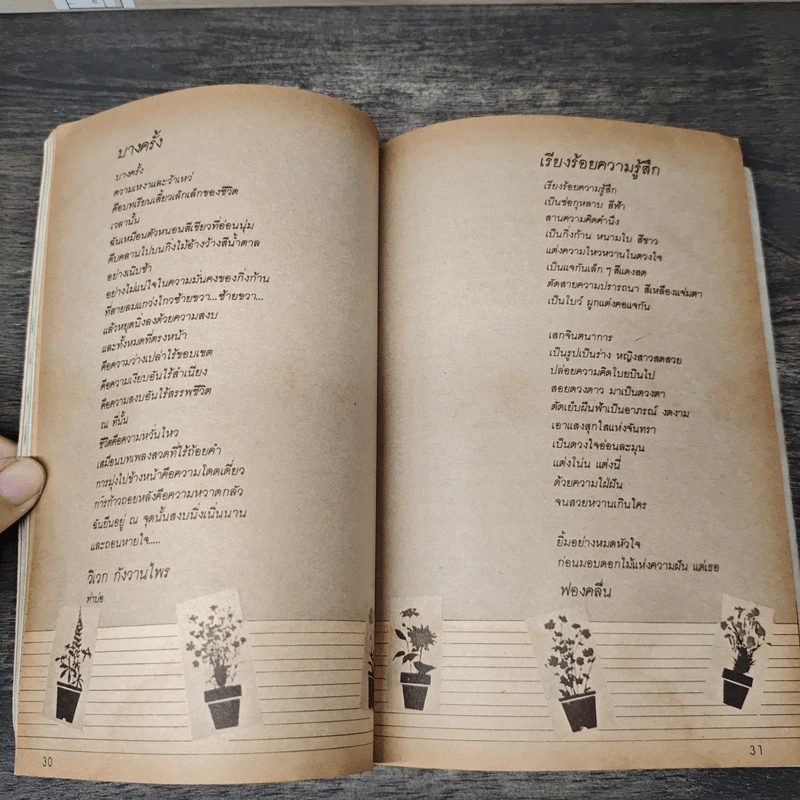 บางครั้ง
บางครั้ง
ความเหงาและว้าเหว่
คือบทเรียนเสี้ยวเล็กเล็กของชีวิต
เวลานั้น
ฉันเหมือนตัวหนอนสีเขียวที่อ่อนนุ่ม
คืบคลานไปบนกิ่งไม้อ้างว้างสีน้ำตาล
อย่างเนิบช้า
อย่างไม่แน่ใจในความมั่นคงของกิ่งก้าน
ที่สายลมแกว่งไกวซ้ายขวา...ซ้ายขวา...
แล้วหยุดนิ่งลงด้วยความสงบ
และทั้งหมดที่ตรงหน้า
คือความว่างเปล่าไร้ขอบเขต
คือความเงียบอันไร้สำเนียง
คือความสงบอันไร้สรรพชีวิต
ณ ที่นั้น
ชีวิตคือความหวั่นไหว
เสมือนบทเพลงสวดที่ไร้ถ้อยคำ
การมุ่งไปข้างหน้าคือความโดดเดี่ยว
การก้าวถอยหลังคือความหวาดกลัว
ฉันยืนอยู่ ณ จุดนั้นสงบนิ่งเนิ่นนาน
และถอนหายใจ.....
วิเวก กังวานไพร
ท่าบ่อ
30
เรียงร้อยความรู้สึก
เรียงร้อยความรู้สึก
เป็นช่อกุหลาบ สีฟ้า
สานความคิดคำนึง
เป็นกิ่งก้าน หนามใบ สีขาว
แต่งความไหวหวานในดวงใจ
เป็นแจกันเล็ก ๆ สีแดงสด
ตัดสายความปรารถนา สีเหลืองแจ่มตา
เป็นโบว์ ผูกแต่งคอแจกัน
เสกจินตนาการ
เป็นรูปเป็นร่าง หญิงสาวสดสวย
ปล่อยความคิดโบยบินไป
สอยดวงดาว มาเป็นดวงตา
ตัดเย็บผืนฟ้าเป็นอาภรณ์ งดงาม
เอาแสงสุกใสแห่งจันทรา
เป็นดวงใจอ่อนละมุน
แต่งโน่น แต่งนี่
ด้วยความใฝ่ฝัน
จนสวยหวานเกินใคร
ยิ้มอย่างหมดหัวใจ
ก่อนมอบดอกไม้แห่งความฝัน แด่เธอ
ฟองคลื่น
31